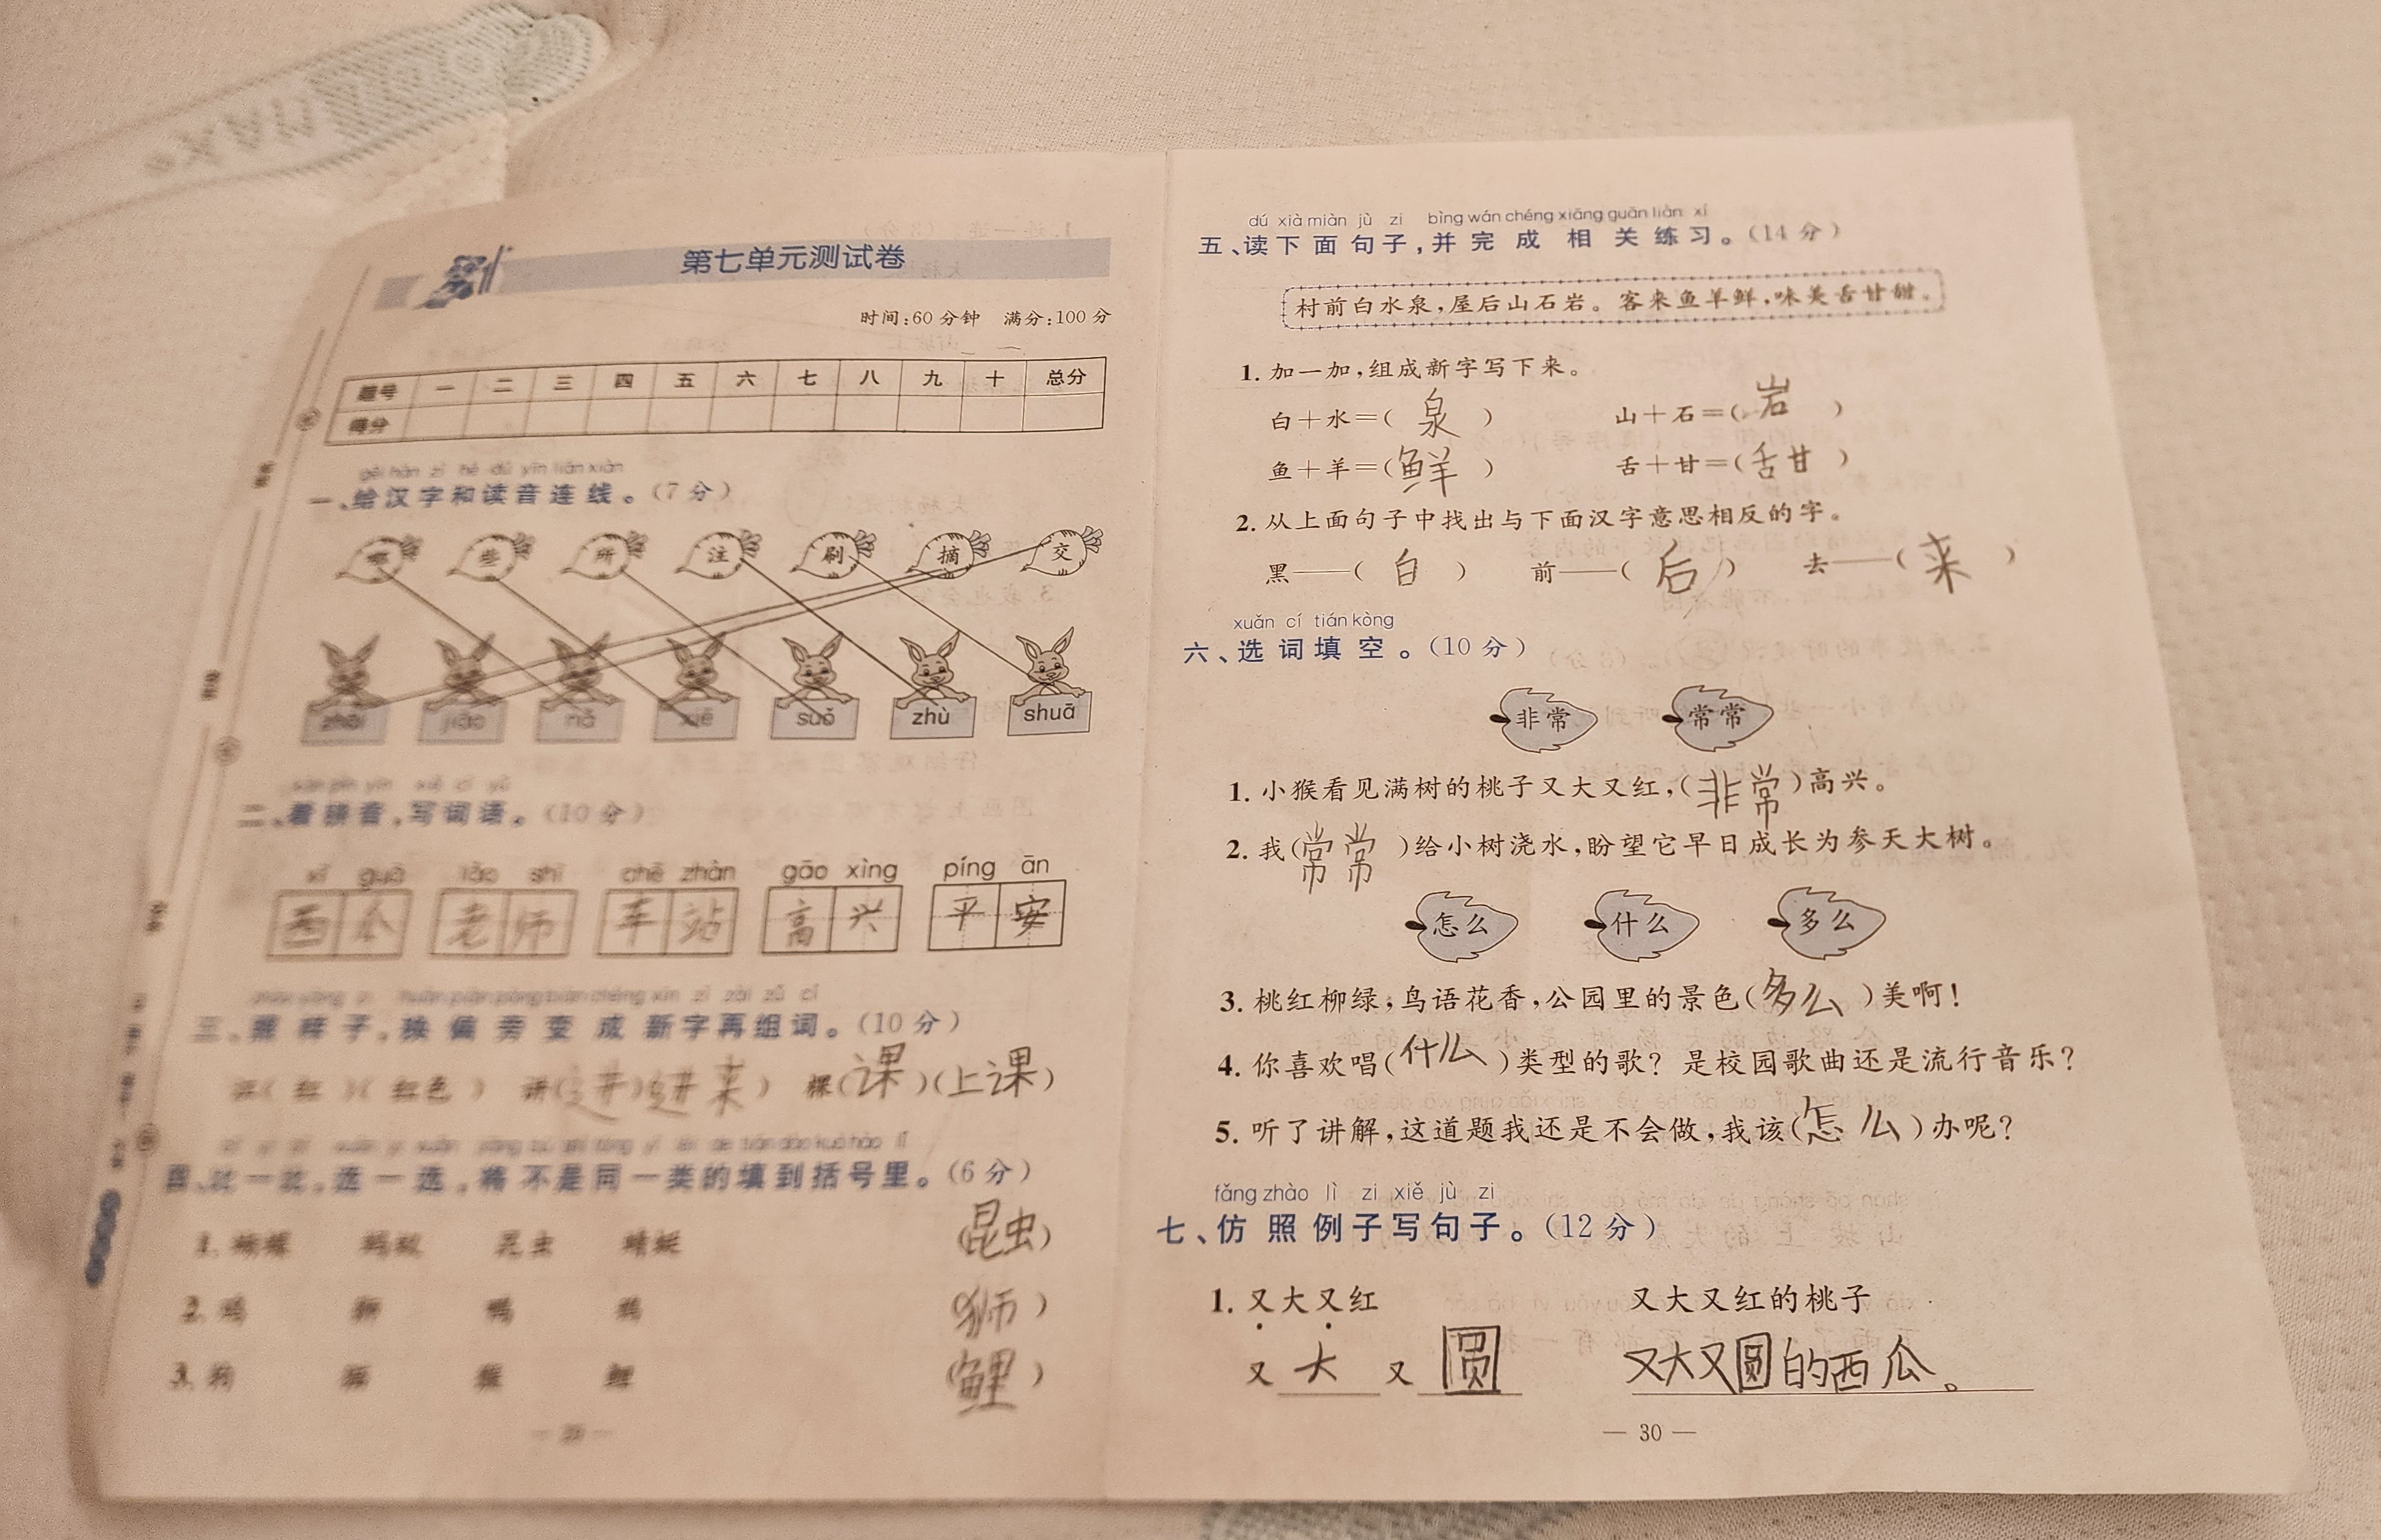 第七单元测试卷
时间:60分钟 满分:100分
题号 一 二 三 四 五 六 七 八 九 十 总分
得分
gěi hàn zì hé dú yīn lián xiàn
一、给汉字和读音连线。(7分)
哪 些 所 注 刷 摘 交
zhāi jiāo nǎ xiē suǒ zhù shuā
kàn pīn yīn xiě cí yǔ
二、看拼音,写词语。(10分)
xī guā lǎo shī chē zhàn gāo xìng píng ān
西瓜 老师 车站 高兴 平安
三、照样子,换偏旁变成新字再组词。(10分)
(红)(红色) 讲(进)(进来) 棵(课)(上课)
四、比一比,选一选,将不是同一类的填到括号里。(6分)
1. 蝴蝶 蚂蚁 昆虫 蜻蜓 (昆虫)
2. 鸡 狮 鸭 鹅 (狮)
3. 狗 猫 猴 鲤 (鲤)
dú xià miàn jù zi bìng wán chéng xiāng guān liàn xí
五、读下面句子,并完成相关练习。(14分)
村前白水泉,屋后山石岩。客来鱼羊鲜,味美舌甘甜。
1. 加一加,组成新字写下来。
白+水=(泉) 山+石=(岩)
鱼+羊=(鲜) 舌+甘=(舌甘)
2. 从上面句子中找出与下面汉字意思相反的字。
黑——(白) 前——(后) 去——(来)
xuǎn cí tián kòng
六、选词填空。(10分)
非常 常常
1. 小猴看见满树的桃子又大又红,(非常)高兴。
2. 我(常常)给小树浇水,盼望它早日成长为参天大树。
怎么 什么 多么
3. 桃红柳绿,鸟语花香,公园里的景色(多么)美啊!
4. 你喜欢唱(什么)类型的歌?是校园歌曲还是流行音乐?
5. 听了讲解,这道题我还是不会做,我该(怎么)办呢?
fǎng zhào lì zi xiě jù zi
七、仿照例子写句子。(12分)
1. 又大又红 又大又红的桃子
又大又圆 又大又圆的西瓜。
— 30 —